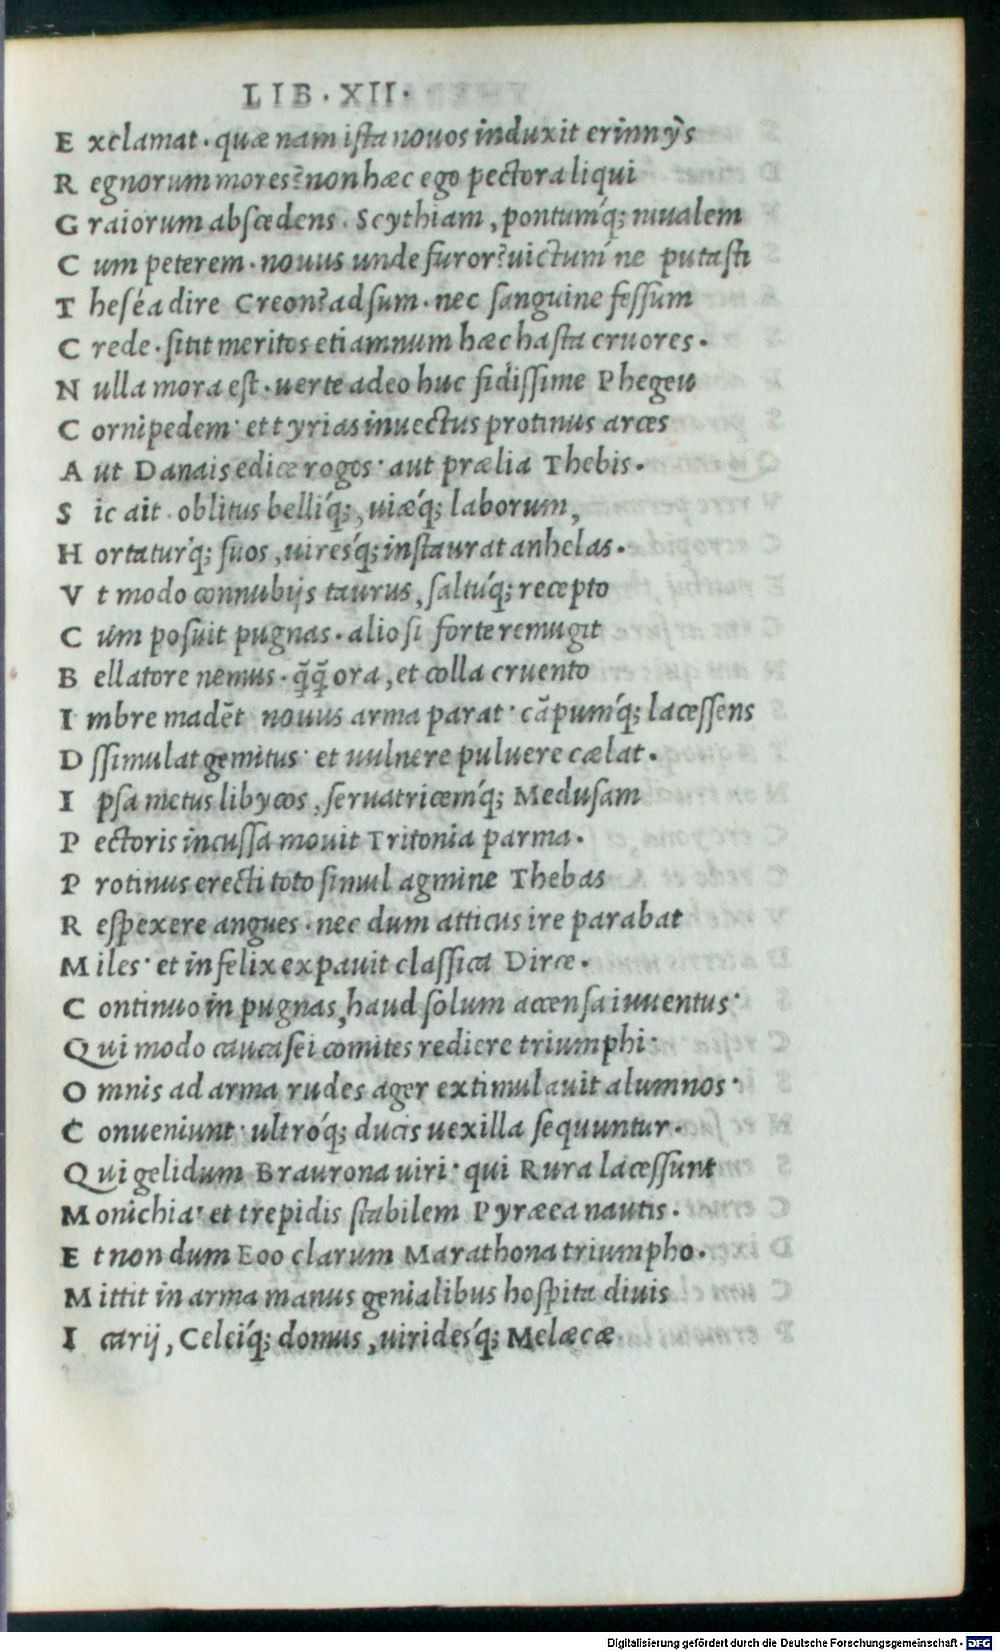 LIB·XII·
E xclamat·quæ nam ista nouos induxit erinnys
R egnorum mores? non hæc ego pectora liqui
G raiorum abscedens. Scythiam, pontumq́; niualem
C um peterem·nouus unde furor? uictum ne putasti
T heséa dire Creon? adsum·nec sanguine fessum
C rede·sitit meritos etiamnum hæc hasta cruores.
N ulla mora est·uerte adeo huc fidissime Phegeu
C ornipedem·et tyrias inuectus protinus arces
A ut Danais edice rogos·aut prælia Thebis.
S ic ait·oblitus belliq́;, uiæq́; laborum,
H ortaturq́; suos, uiresq́; instaurat anhelas.
V t modo connubijs taurus, saltuq́; recepto
C um posuit pugnas·alio si forte remugit
B ellatore nemus·q̃q̃ ora, et colla cruento
I mbre madẽt nouus arma parat·cãpumq́; lacessens
D ssimulat gemitus·et uulnere puluere cælat.
I psa metus libycos, seruatricemq́; Medusam
P ectoris incussa mouit Tritonia parma.
P rotinus erecti toto simul agmine Thebas
R espexere angues·nec dum atticus ire parabat
M iles·et infelix expauit classica Dirce.
C ontinuo in pugnas, haud solum accensa iuuentus·
Q ui modo caucasei comites rediere triumphi·
O mnis ad arma rudes ager extimulauit alumnos·
C onueniunt·ultroq́; ducis uexilla sequuntur.
Q ui gelidum Braurona uiri·qui Rura lacessunt
M onichia·et trepidis stabilem Pyræea nautis.
E t nondum Eoo clarum Marathona triumpho.
M ittit in arma manus genialibus hospita diuis
I carij, Celeiq́; domus, uiridesq́; Melæcæ.
Digitalisierung gefördert durch die Deutsche Forschungsgemeinschaft - DFG